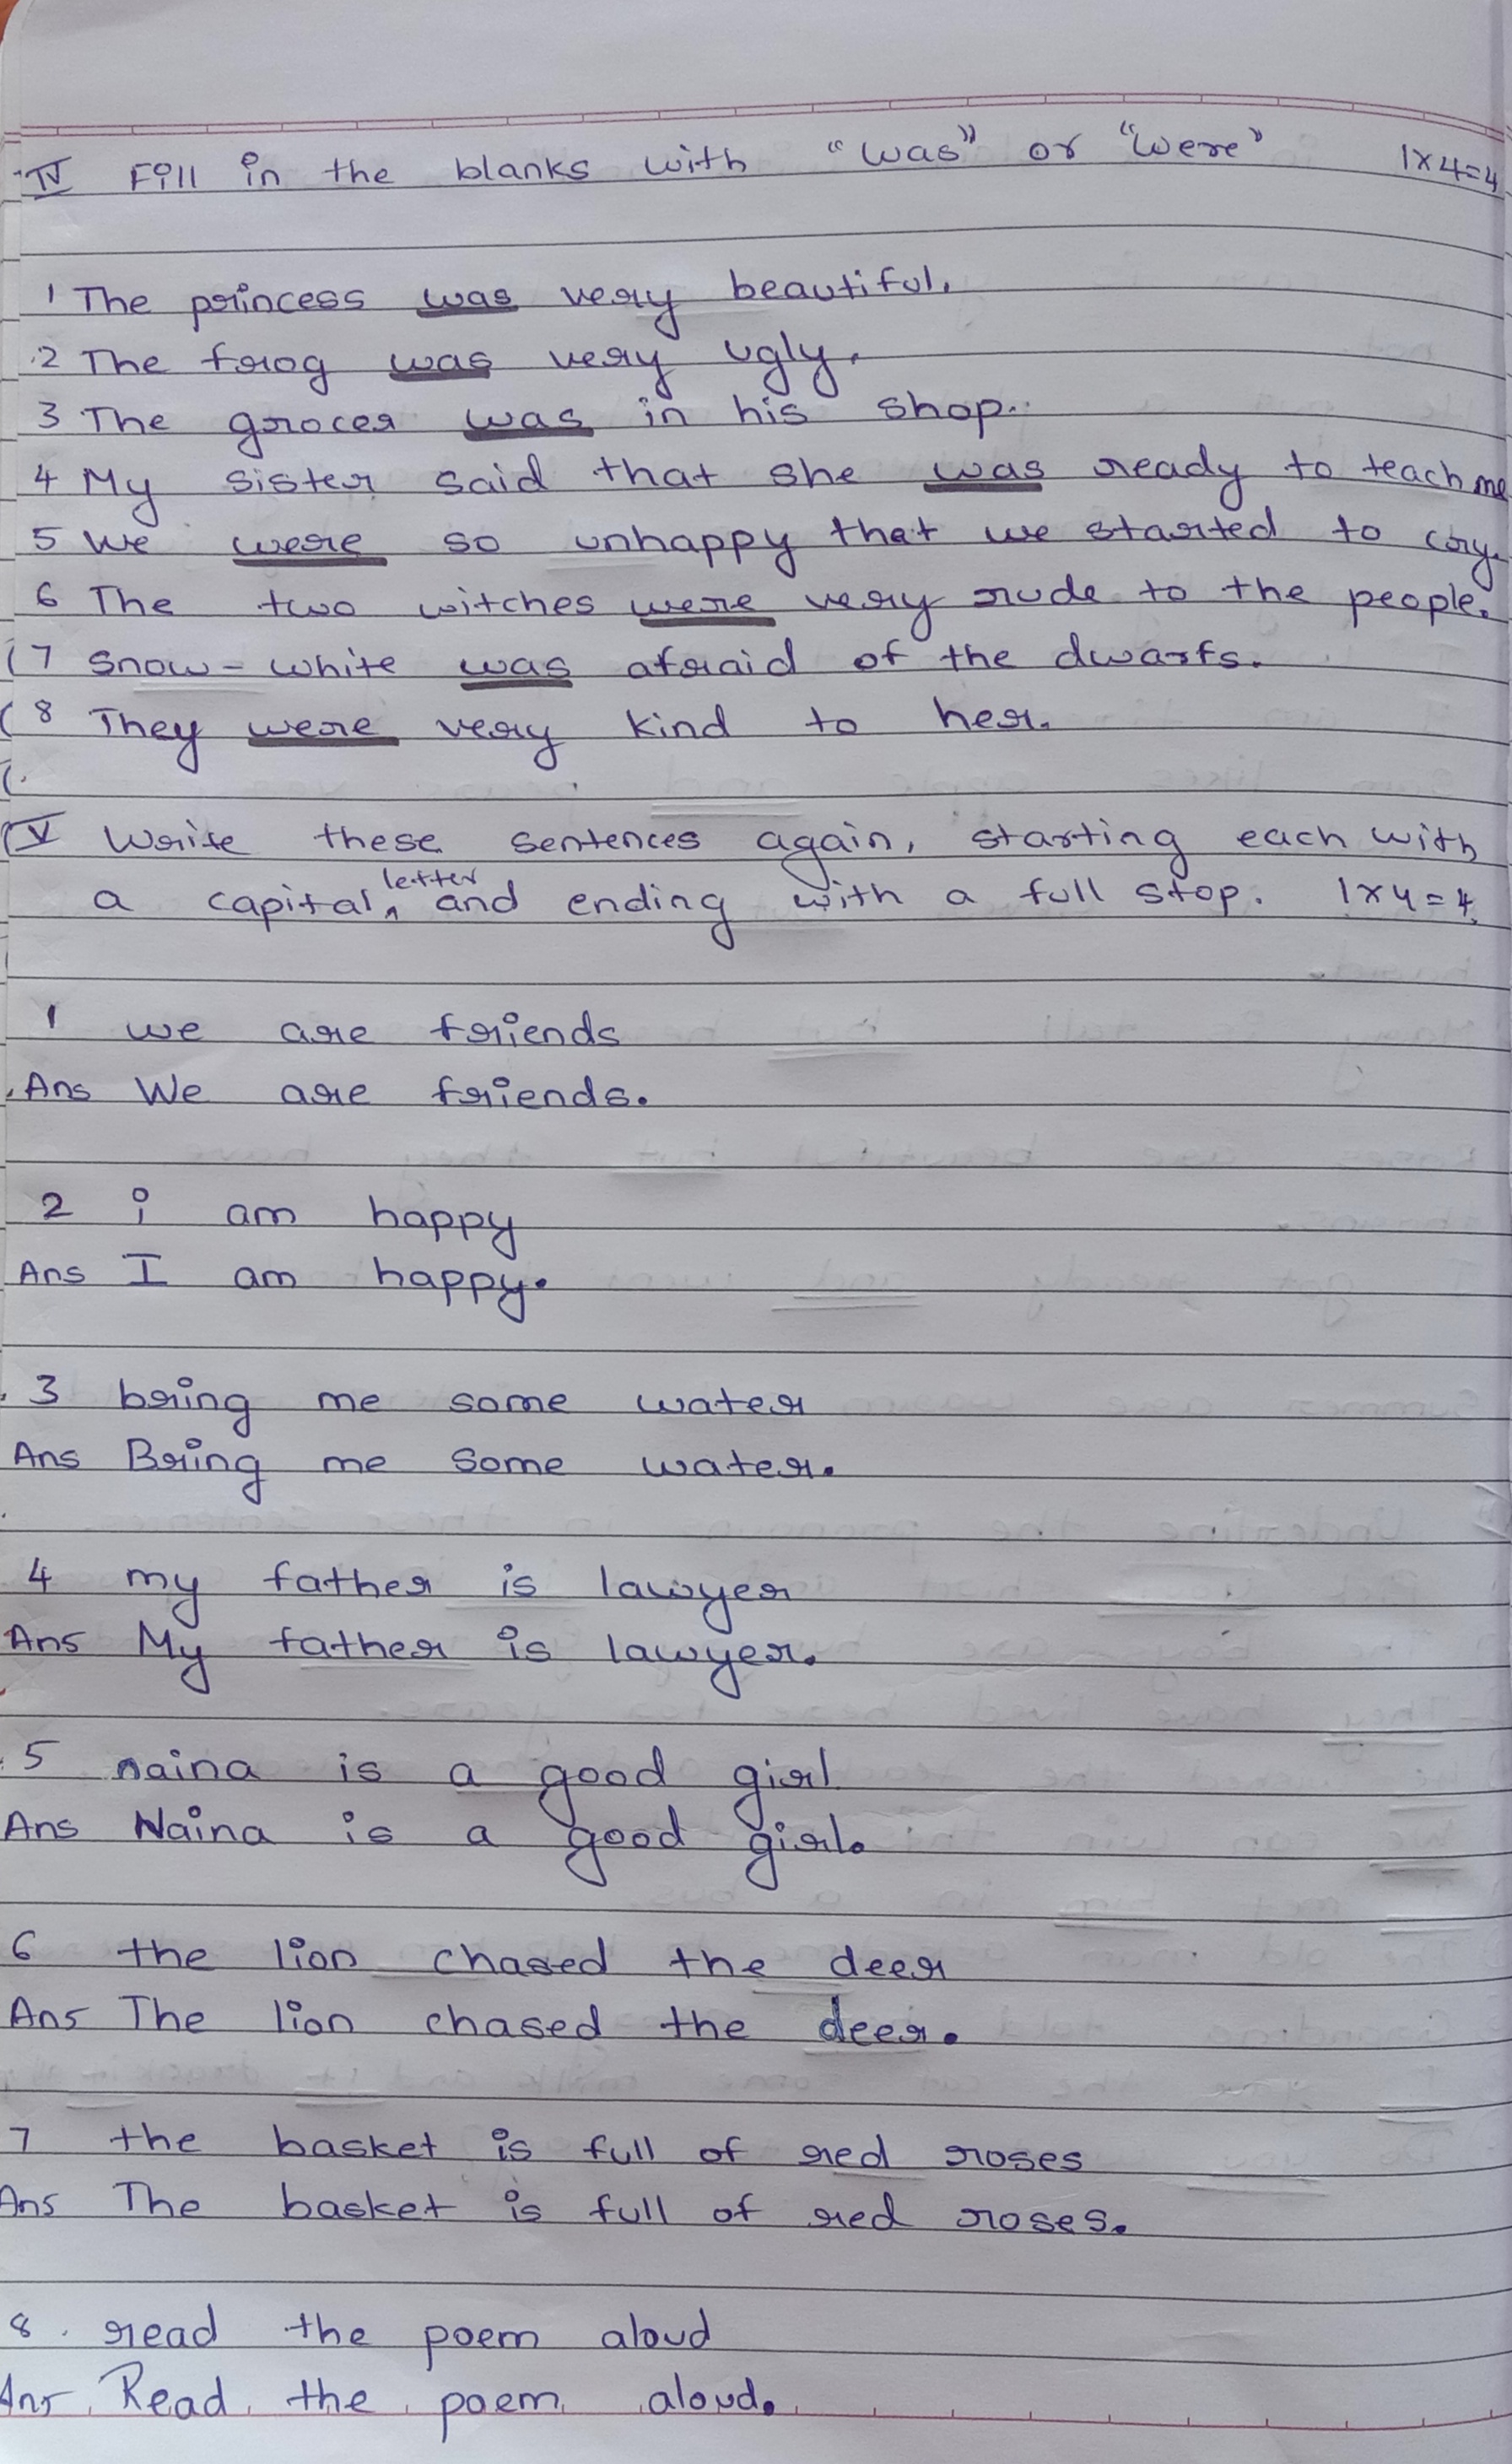 IV Fill in the blanks with "was" or "were" 1x4=4
1 The princess was very beautiful.
2 The frog was very ugly.
3 The grocer was in his shop.
4 My sister said that she was ready to teach me
5 We were so unhappy that we started to cry.
6 The two witches were very rude to the people.
7 Snow-white was afraid of the dwarfs.
8 They were very kind to her.
V Write these sentences again, starting each with
a capital letter and ending with a full stop. 1x4=4
1 we are friends
Ans We are friends.
2 i am happy
Ans I am happy.
3 bring me some water
Ans Bring me some water.
4 my father is lawyer
Ans My father is lawyer.
5 naina is a good girl
Ans Naina is a good girl.
6 the lion chased the deer
Ans The lion chased the deer.
7 the basket is full of red roses
Ans The basket is full of red roses.
8. read the poem aloud
Ans Read the poem aloud.